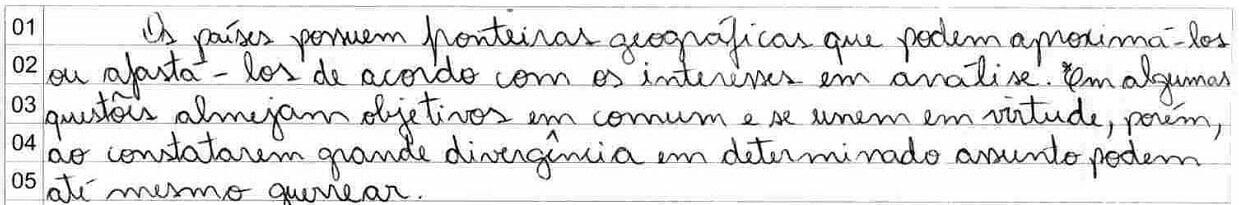 01 Os países possuem fronteiras geográficas que podem aproximá-los
02 ou afastá-los de acordo com os interesses em análise. Em algumas
03 questões almejam objetivos em comum e se unem em virtude, porém,
04 ao constatarem grande divergência em determinado assunto podem
05 até mesmo guerrear.